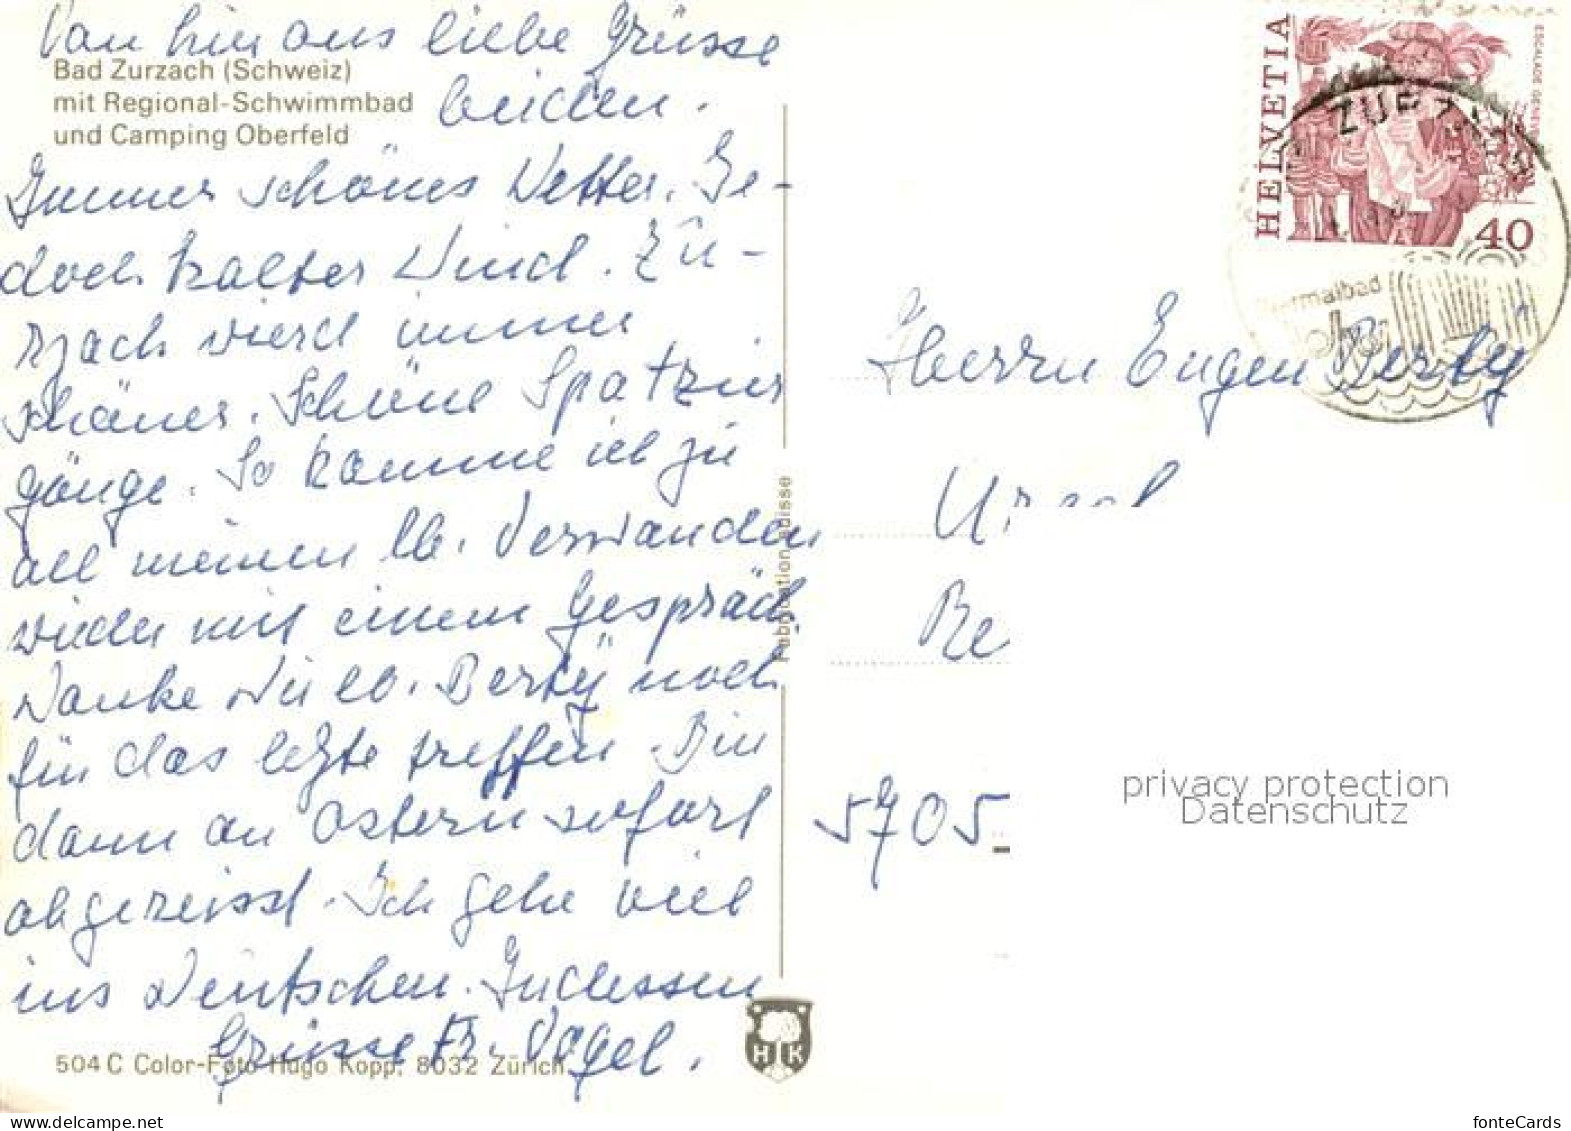 Von hier aus liebe Grüsse
Bad Zurzach (Schweiz)
mit Regional-Schwimmbad
und Camping Oberfeld
beiden.
Immer schönes Wetter. Je-
doch kalter Wind. Zu-
rzach wierd immer
schöner. Schöne Spatzier
gänge. So komme ich zu
all meinen lb. Verwanden
wieder mit einem Gespräch.
Danke Dir lb. Berty noch
für das letzte treffen. Bin
dann an Ostern sofort
abgereisst. Ich gehe viel
ins Deutschen. Indessen
Grüsse Fr. Vogel.
504 C Color-Foto Hugo Kopp, 8032 Zürich
H K
Fabrication suisse
HELVETIA
ESCALADE GENÈVE
40
ZURZACH
Thermalbad
Herrn Eugen Berty
5705
privacy protection
Datenschutz
fonteCards